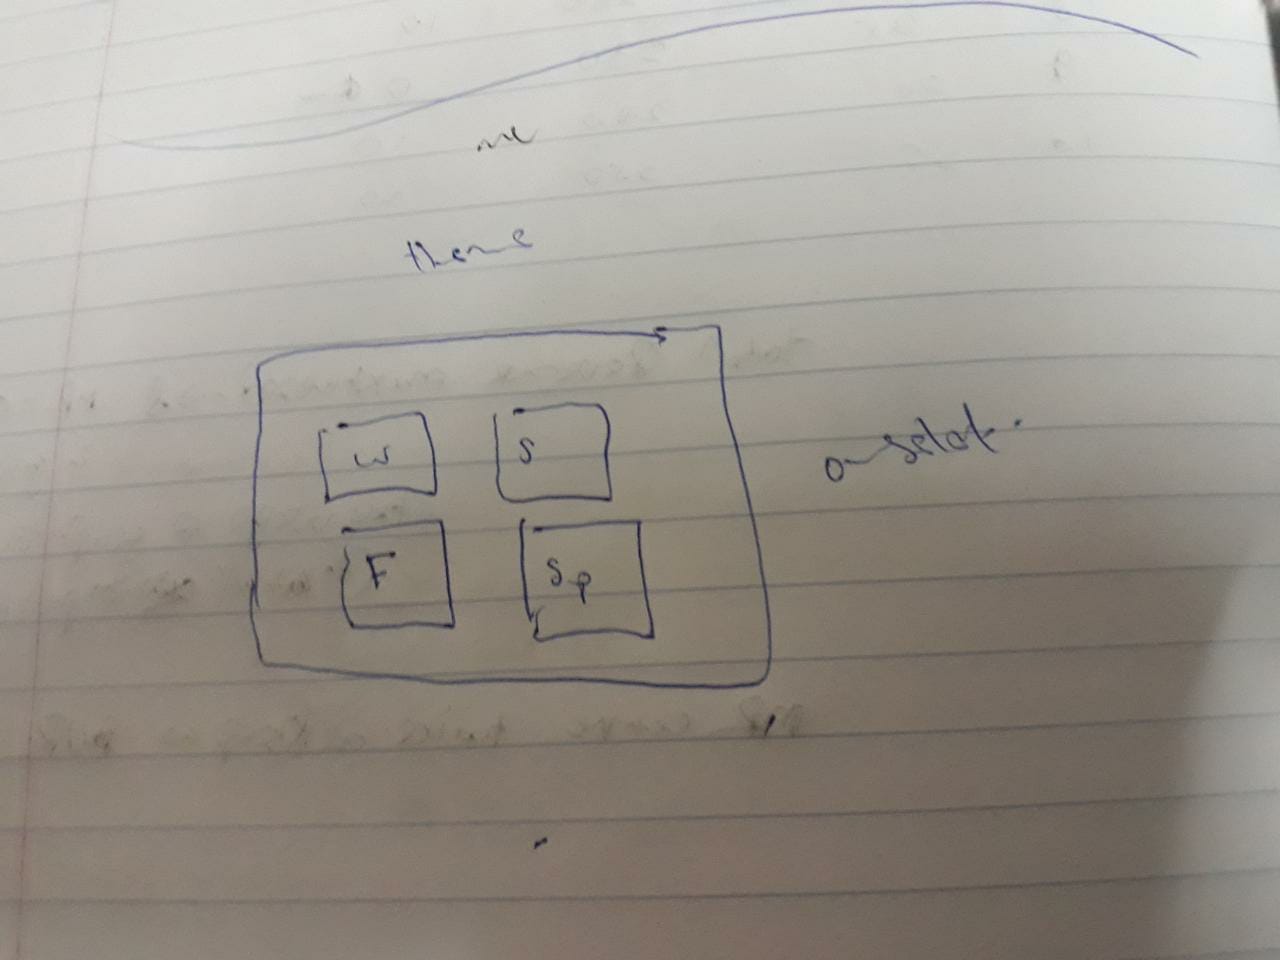 theme
W S
F Sp
onselect.